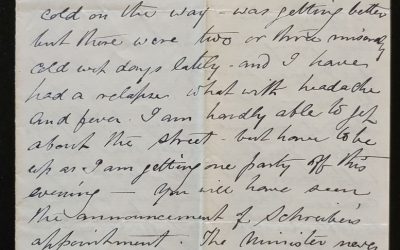 cold on the way - was getting better
but there were two or three miserably
cold wet days lately - and I have
had a relapse what with headache
and fever. I am hardly able to get
about the street - but have to be
up as I am getting one party off this
evening — You will have seen
the announcement of Schreiber's
appointment. The Minister never